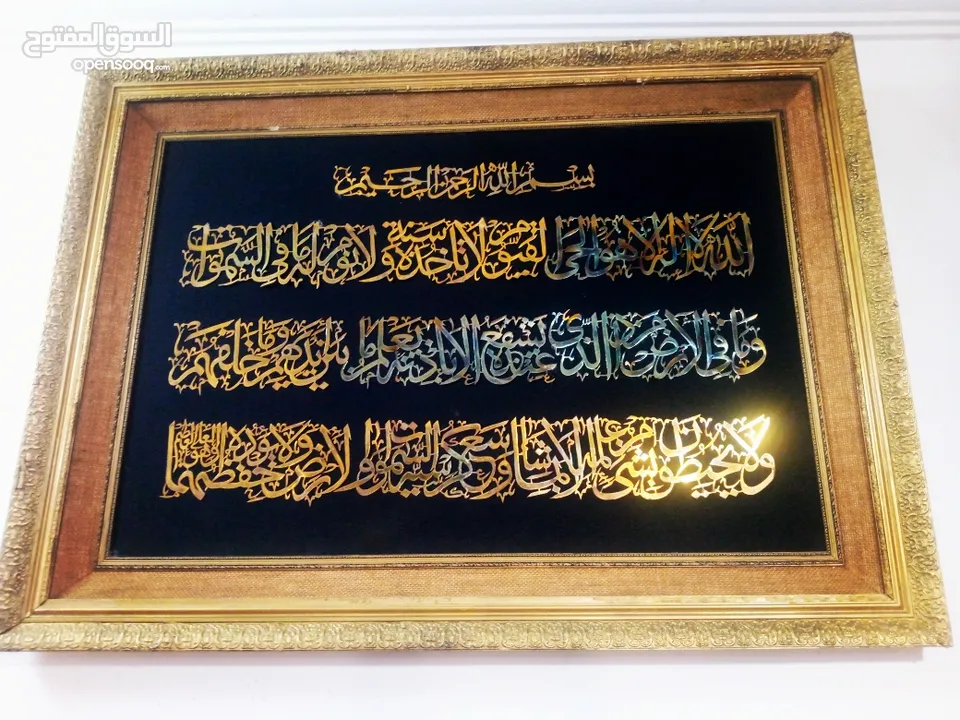 السوق المفتوح
opensooq.com
بسم الله الرحمن الرحيم
الله لا اله الا هو الحي القيوم لا تأخذه سنة ولا نوم له ما في السموات
وما في الارض من ذا الذي يشفع عنده الا باذنه يعلم ما بين ايديهم وما خلفهم
ولا يحيطون بشيء من علمه الا بما شاء وسع كرسيه السموات والارض ولا يؤده حفظهما وهو العلي العظيم